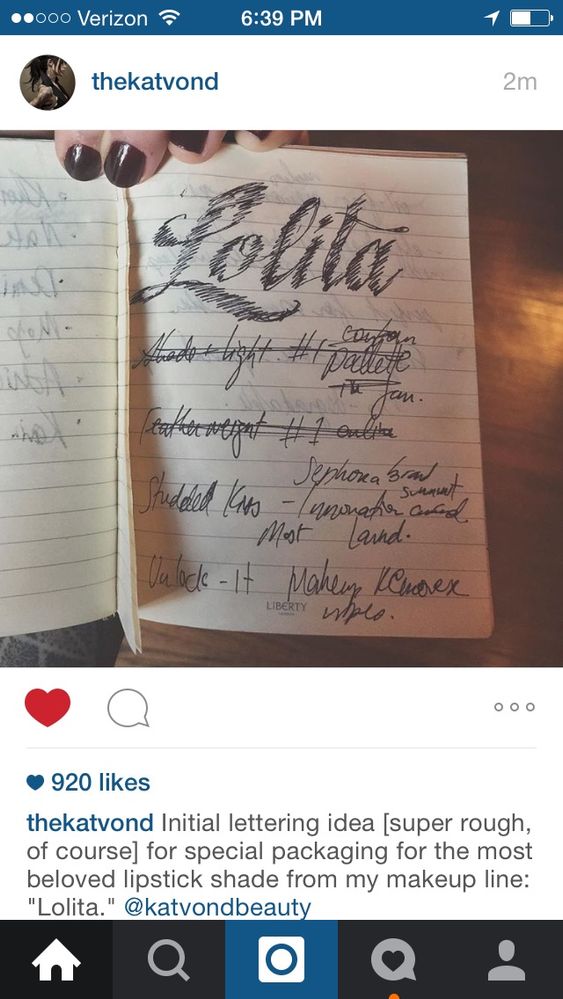 Verizon 6:39 PM
thekatvond 2m
Lolita
Shade + light #1 contour
pallette
in Jan.
Featherweight #1 online
Sephora brand
summit
Studded Kiss - Innovation award
Most Laund.
Unlock-It Makeup Remover
wipes.
LIBERTY
920 likes
thekatvond Initial lettering idea [super rough,
of course] for special packaging for the most
beloved lipstick shade from my makeup line:
"Lolita." @katvondbeauty